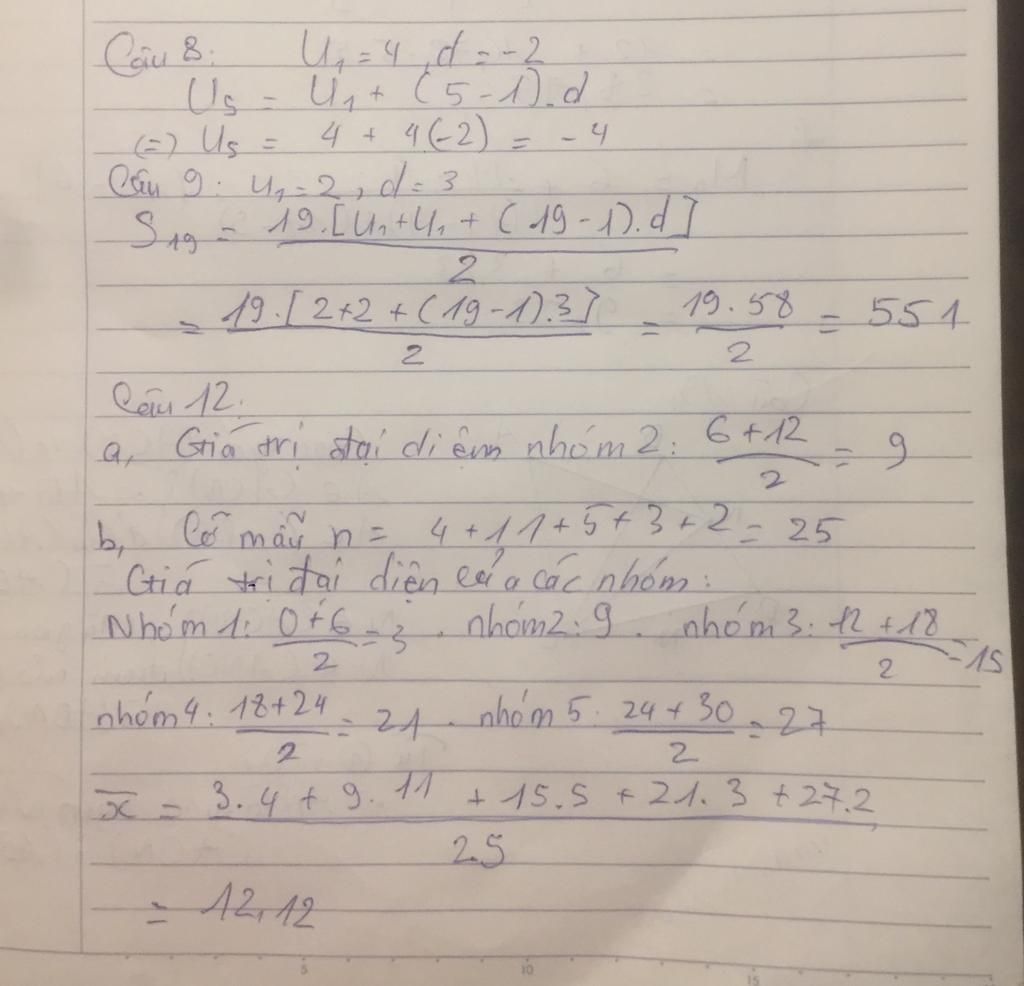 Câu 8: U₁ = 4, d = -2
U₅ = U₁ + (5 - 1).d
(=) U₅ = 4 + 4(-2) = -4
Câu 9: U₁ = 2, d = 3
S₁₉ = 19.[U₁+U₁ + (19-1).d] / 2
= 19.[2+2 + (19-1).3] / 2 = 19.58 / 2 = 551
Câu 12:
a, Giá trị đại diện nhóm 2: 6+12 / 2 = 9
b, Cỡ mẫu n = 4+11+5+3+2 = 25
Giá trị đại diện của các nhóm:
Nhóm 1: 0+6 / 2 = 3 . nhóm 2: 9 . nhóm 3: 12+18 / 2 = 15
nhóm 4: 18+24 / 2 = 21 . nhóm 5: 24+30 / 2 = 27
x̄ = 3.4 + 9.11 + 15.5 + 21.3 + 27.2 / 25
= 12,12
5 10 15